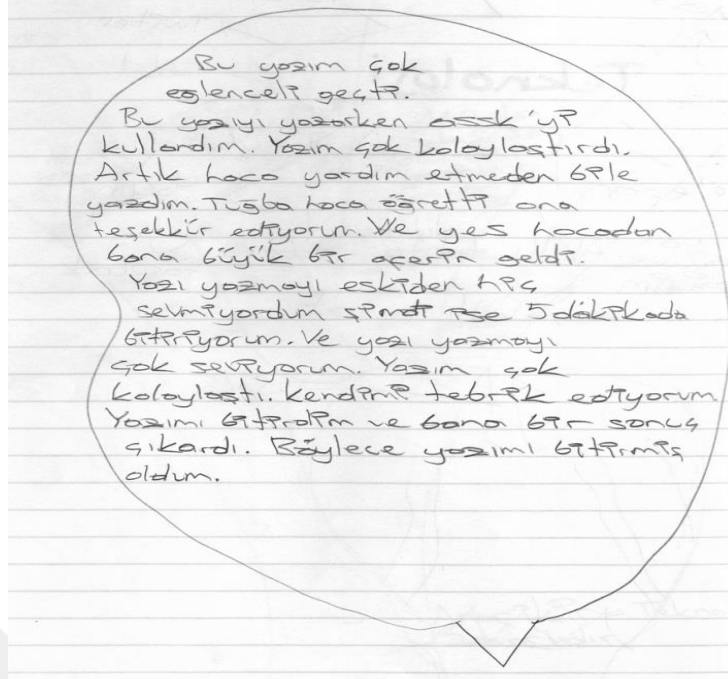 Bu yazım çok
eğlenceli geçti.
Bu yazıyı yazarken ossk'yi
kullandım. Yazım çok kolaylaştırdı.
Artık hoca yardım etmeden bile
yazdım. Tuğba hoca öğretti ona
teşekkür ediyorum. Ve yes hocadan
bana büyük bir aferin geldi.
Yazı yazmayı eskiden hiç
sevmiyordum şimdi ise 5 dakikada
bitiriyorum. Ve yazı yazmayı
çok seviyorum. Yazım çok
kolaylaştı. kendimi tebrik ediyorum
Yazımı bitirdim ve bana bir sonuç
çıkardı. Böylece yazımı bitirmiş
oldum.